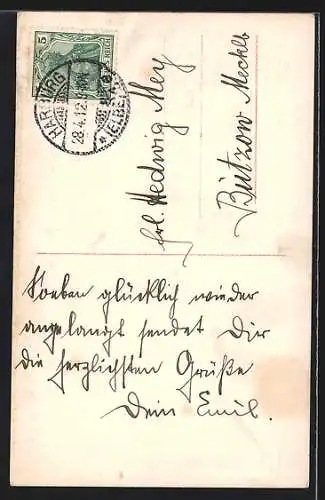 5
HARBURG
28.4.12.
* (ELBE)
Frl. Hedwig Mey
Bützow Meckl.
Soeben glücklich wieder
angelangt sendet Dir
die herzlichsten Grüße
Dein Emil.